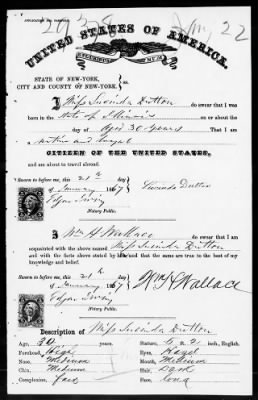 UNITED STATES OF AMERICA.
E PLURIBUS UNUM
STATE OF NEW-YORK,
CITY AND COUNTY OF NEW-YORK, } ss.
I Miss Lucinda Dutton do swear that I was
born in the State of Illinois on or about the
day of Aged 30 years That I am
a Native and Loyal
CITIZEN OF THE UNITED STATES,
and am about to travel abroad.
Sworn to before me, this 21st
of January 1867
Lucinda Dutton
Notary Public.
I Wm H Wallace do swear that I am
acquainted with the above named Miss Lucinda Dutton
and with the facts above stated by and that the same are true to the best of my
knowledge and belief.
Sworn to before me, this 21st
of January 1867
W H Wallace
Notary Public.
Description of Miss Lucinda Dutton
Age, 30 Stature, 5 ft. 2 inch, English.
Forehead, High Eyes, Hazel
Nose, Medium Mouth, Medium
Chin, Medium Hair, Dark
Complexion, Fair Face, Long